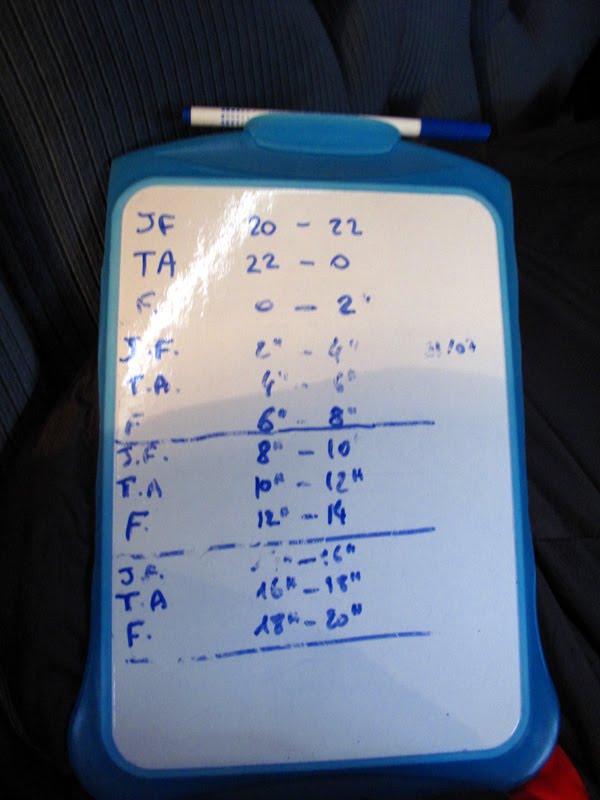 JF 20 - 22
TA 22 - 0
F. 0 - 2H
J.F. 2H - 4H
T.A. 4H - 6H
F. 6H - 8H
J.F. 8H - 10
T.A 10H - 12H
F. 12H - 14
J.F. - 16H
T.A 16H - 18H
F. 18H - 20H